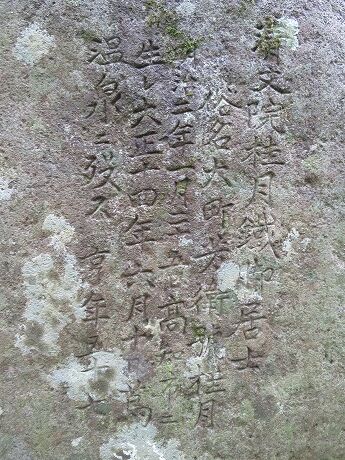 清文院桂月鉄脚居士
俗名大町芳衛号桂月
明治二年一月三五高知市ニ
生レ大正十四年六月十日蔦
温泉ニ歿ス 享年五十七